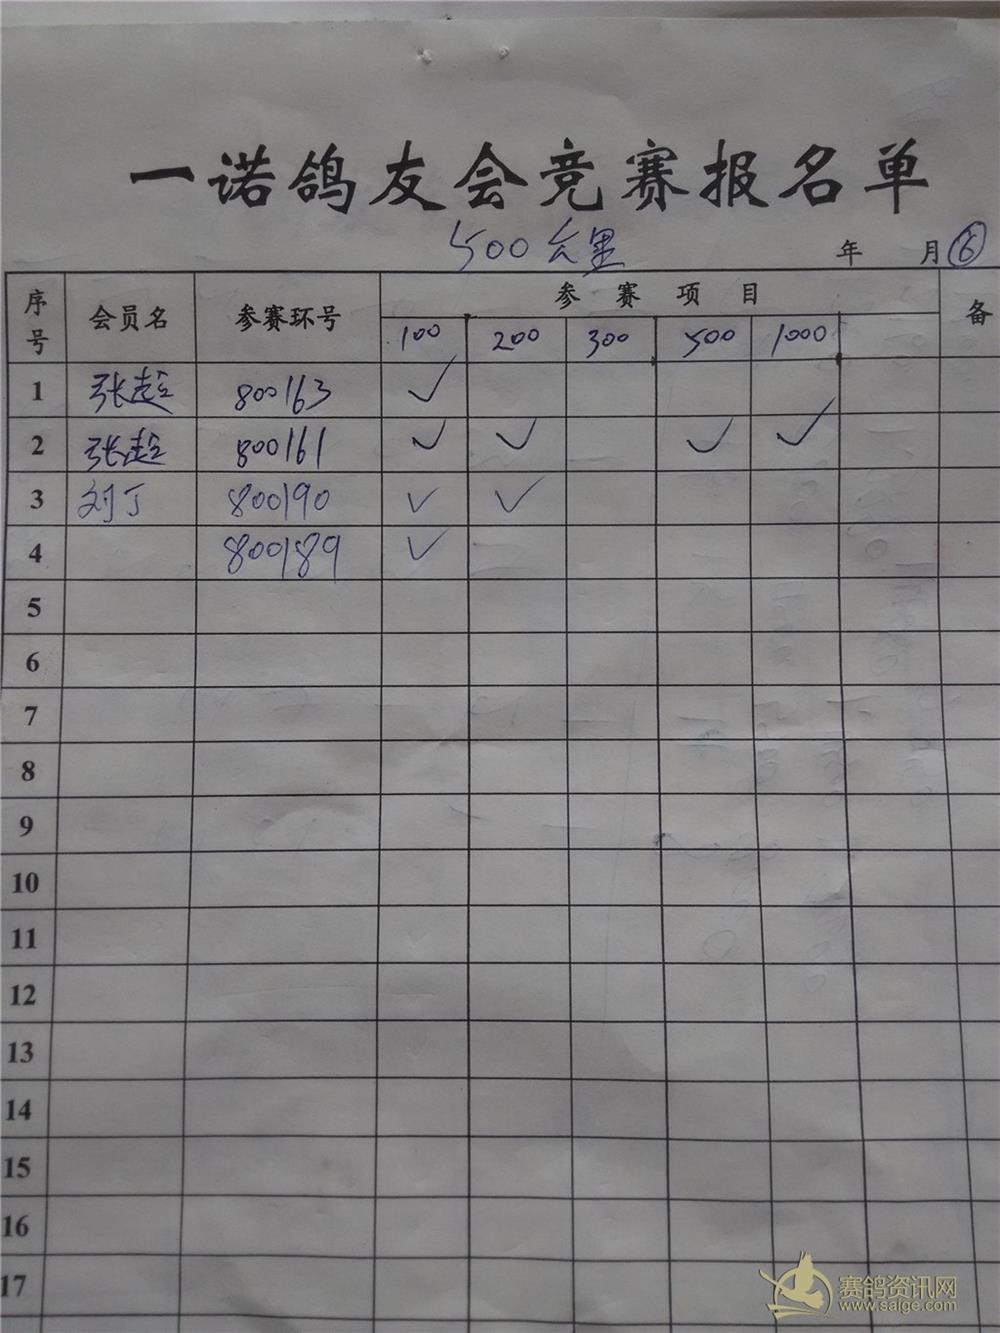 一诺鸽友会竞赛报名单
500公里 年 月 ⑥
序号 会员名 参赛环号 参赛项目 备
100 200 300 500 1000
1 张超 800163 ✓
2 张超 800161 ✓ ✓ ✓ ✓
3 刘丁 800190 ✓ ✓
4 800189 ✓
5
6
7
8
9
10
11
12
13
14
15
16
17
赛鸽资讯网
www.saige.com